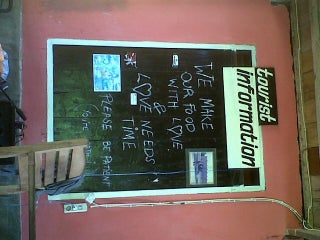 tourist
information
WE MAKE
OUR FOOD
WITH LOVE
&
LOVE NEEDS
TIME
PLEASE BE PATIENT